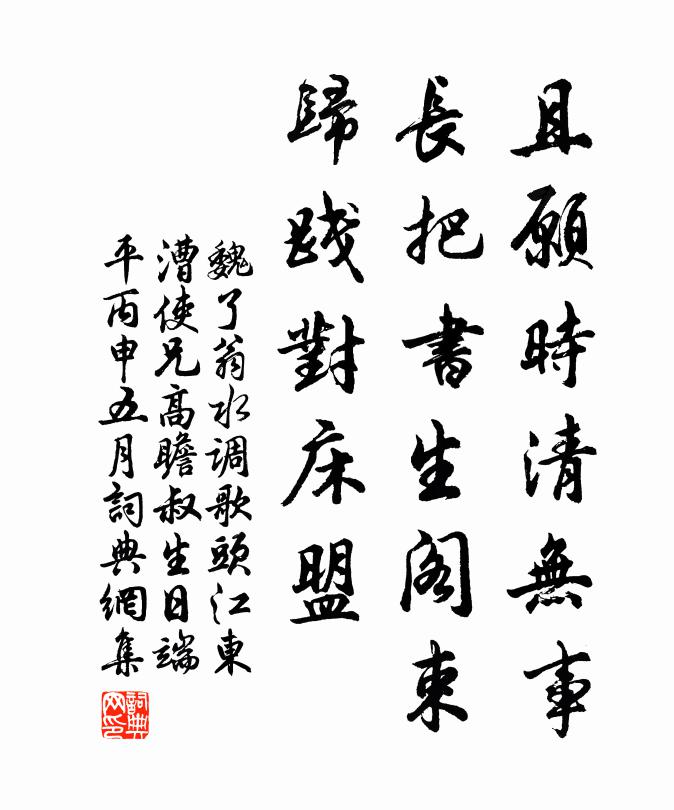 且願時清無事
長把書生閣束
歸践對床盟
魏了翁水调歌頭江東
漕使兄高瞻叔生日端
平丙申五月詞典網集
詞典网印